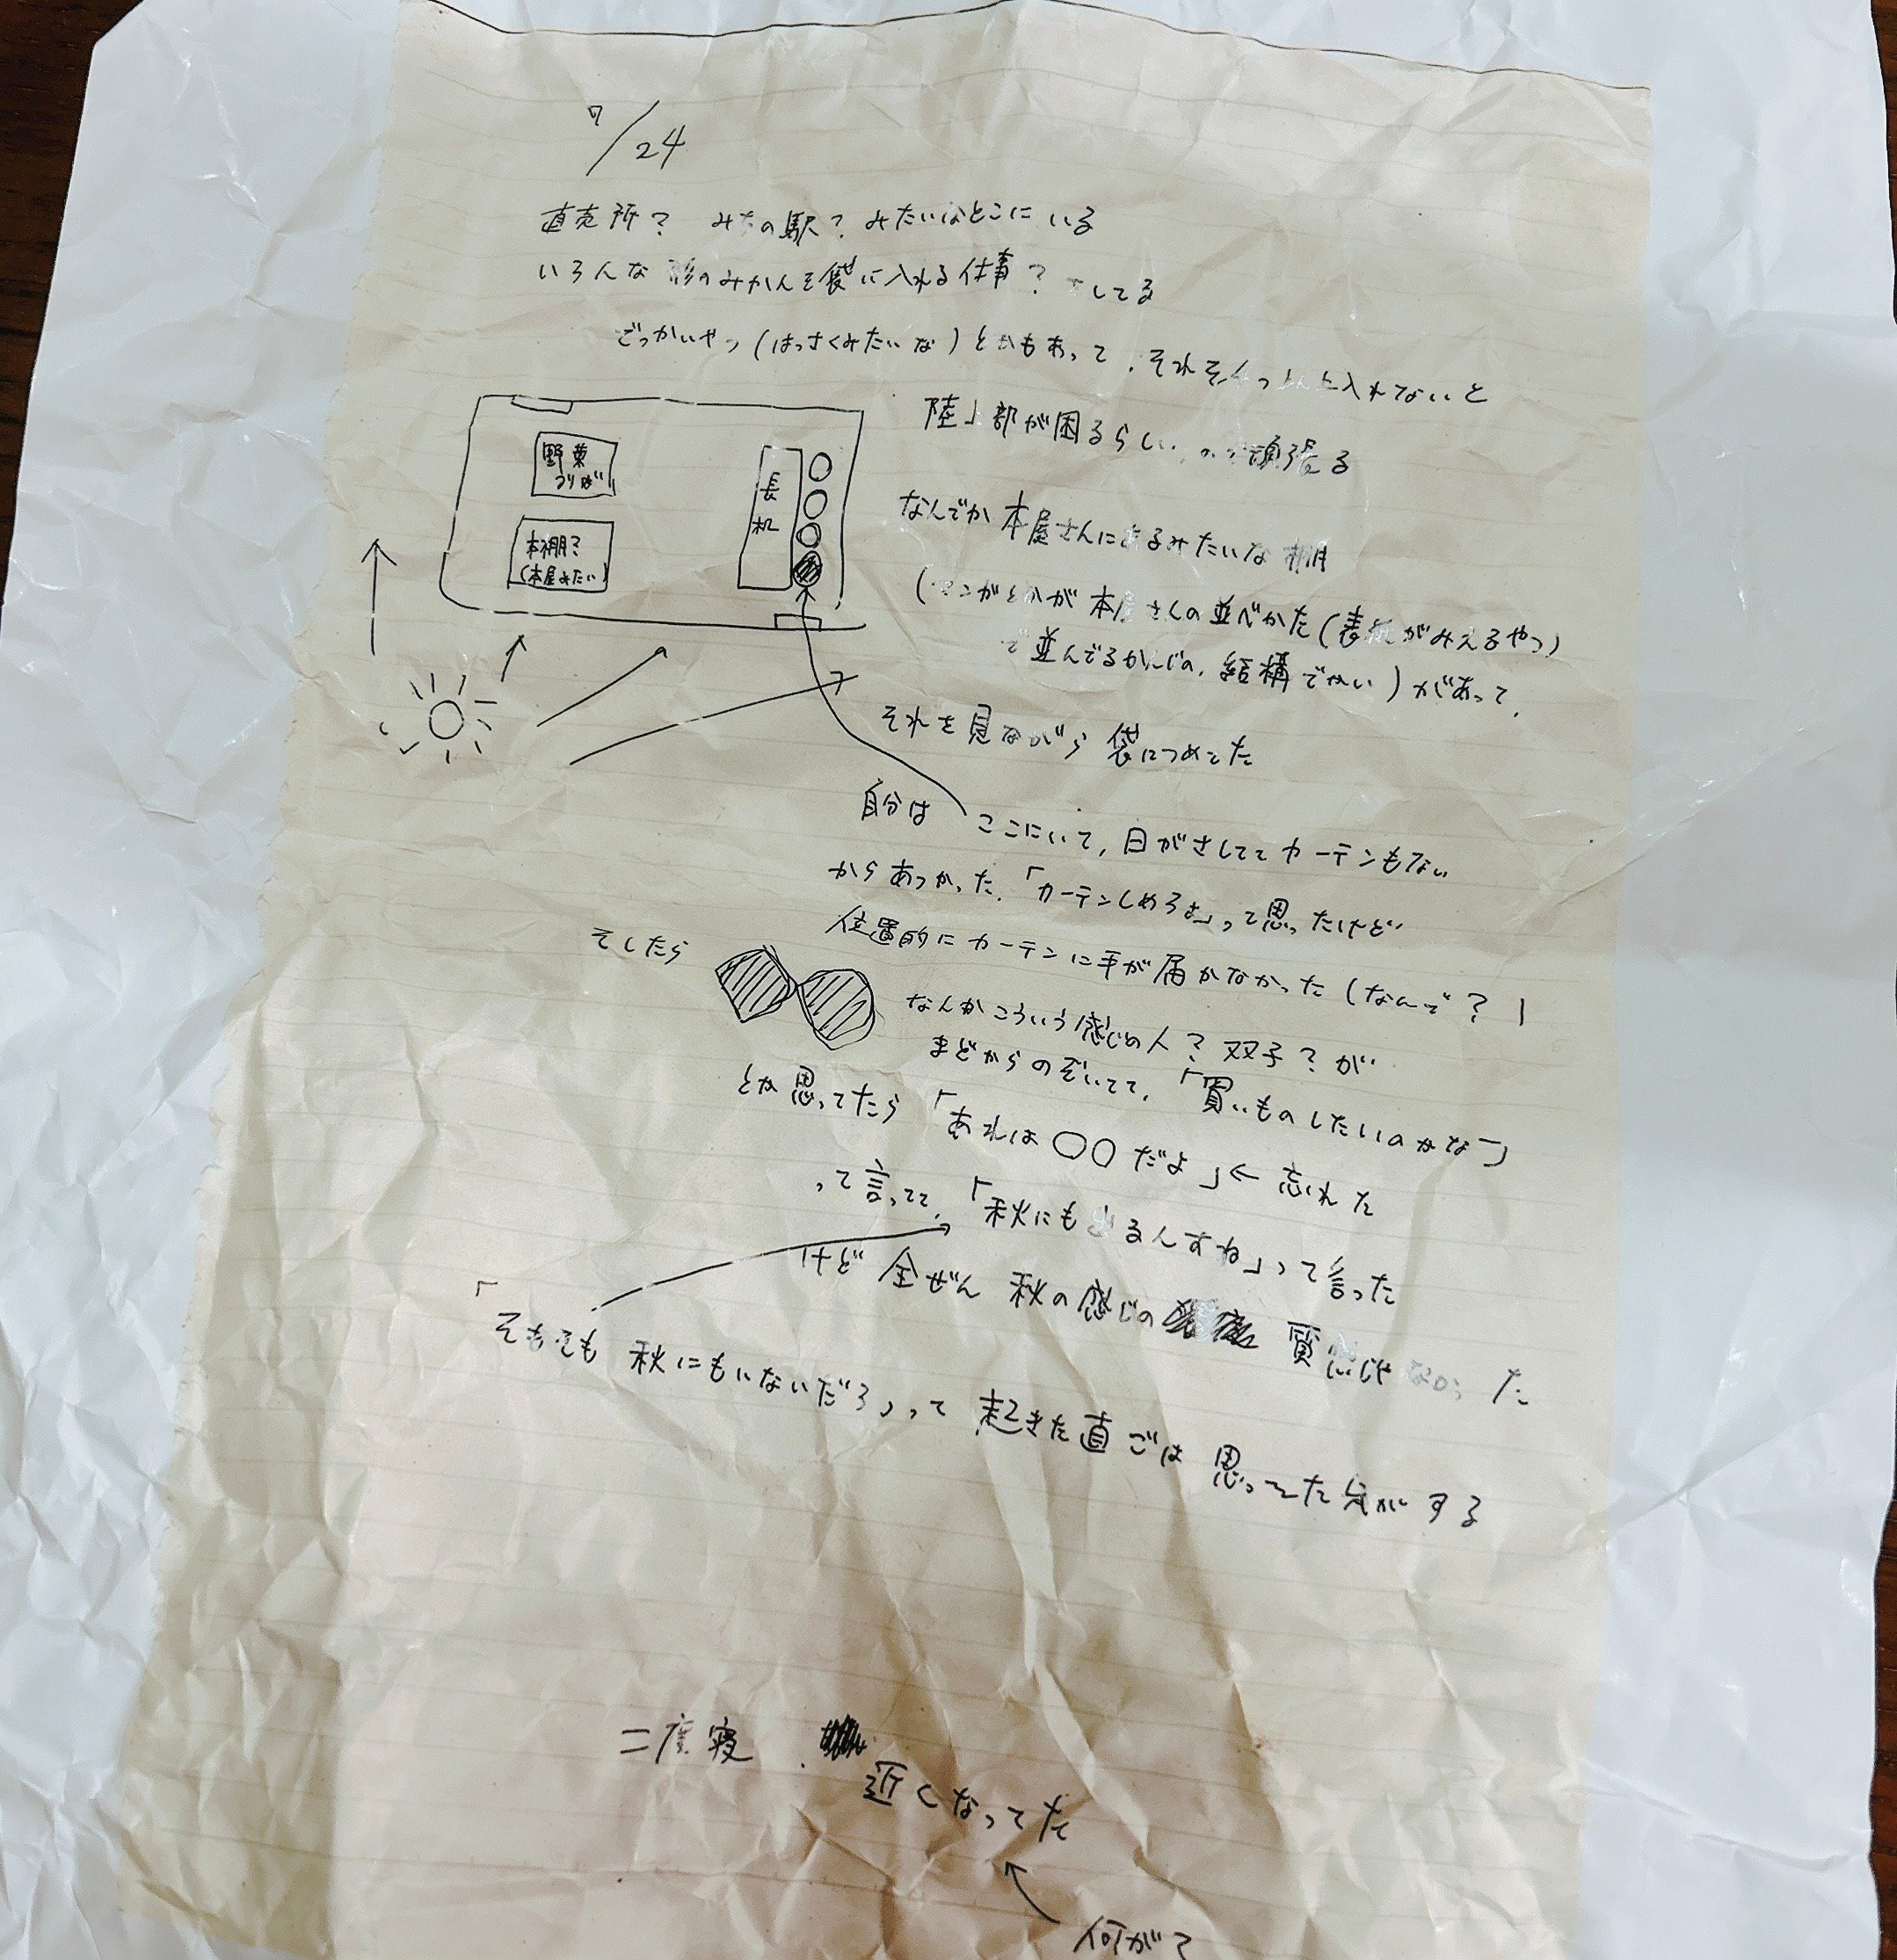 7/24
直売所？ みちの駅？ みたいなとこにいる
いろんな形のみかんを袋に入れる仕事？をしてる
でっかいやつ(はっさくみたいな)とかもあって、それを 入れないと
陸上部が困るらしい 頑張る
野菜
うりば
長机
本棚？
(本屋みたい)
なんでか本屋さんにあるみたいな棚
(マンガとかが本屋さんの並べかた(表紙がみえるやつ)
で並んでるかんじの、結構でかい)があって、
それを見ながら袋につめてた
自分は ここにいて、日がさしててカーテンもない
からあつかった。「カーテンしめろよ」って思ったけど
位置的にカーテンに手が届かなかった(なんで？)
そしたら
なんかこういう感じの人？双子？が
まどからのぞいてて、「買いものしたいのかな」
とか思ってたら「あれは〇〇だよ」←忘れた
って言ってて、「秋にも出るんすね」って言った
けど全ぜん秋の感じの 質感じゃなかった
「そもそも秋にもいないだろ」って起きた直ごは思ってた気がする
二度寝
近くなってた
何が？